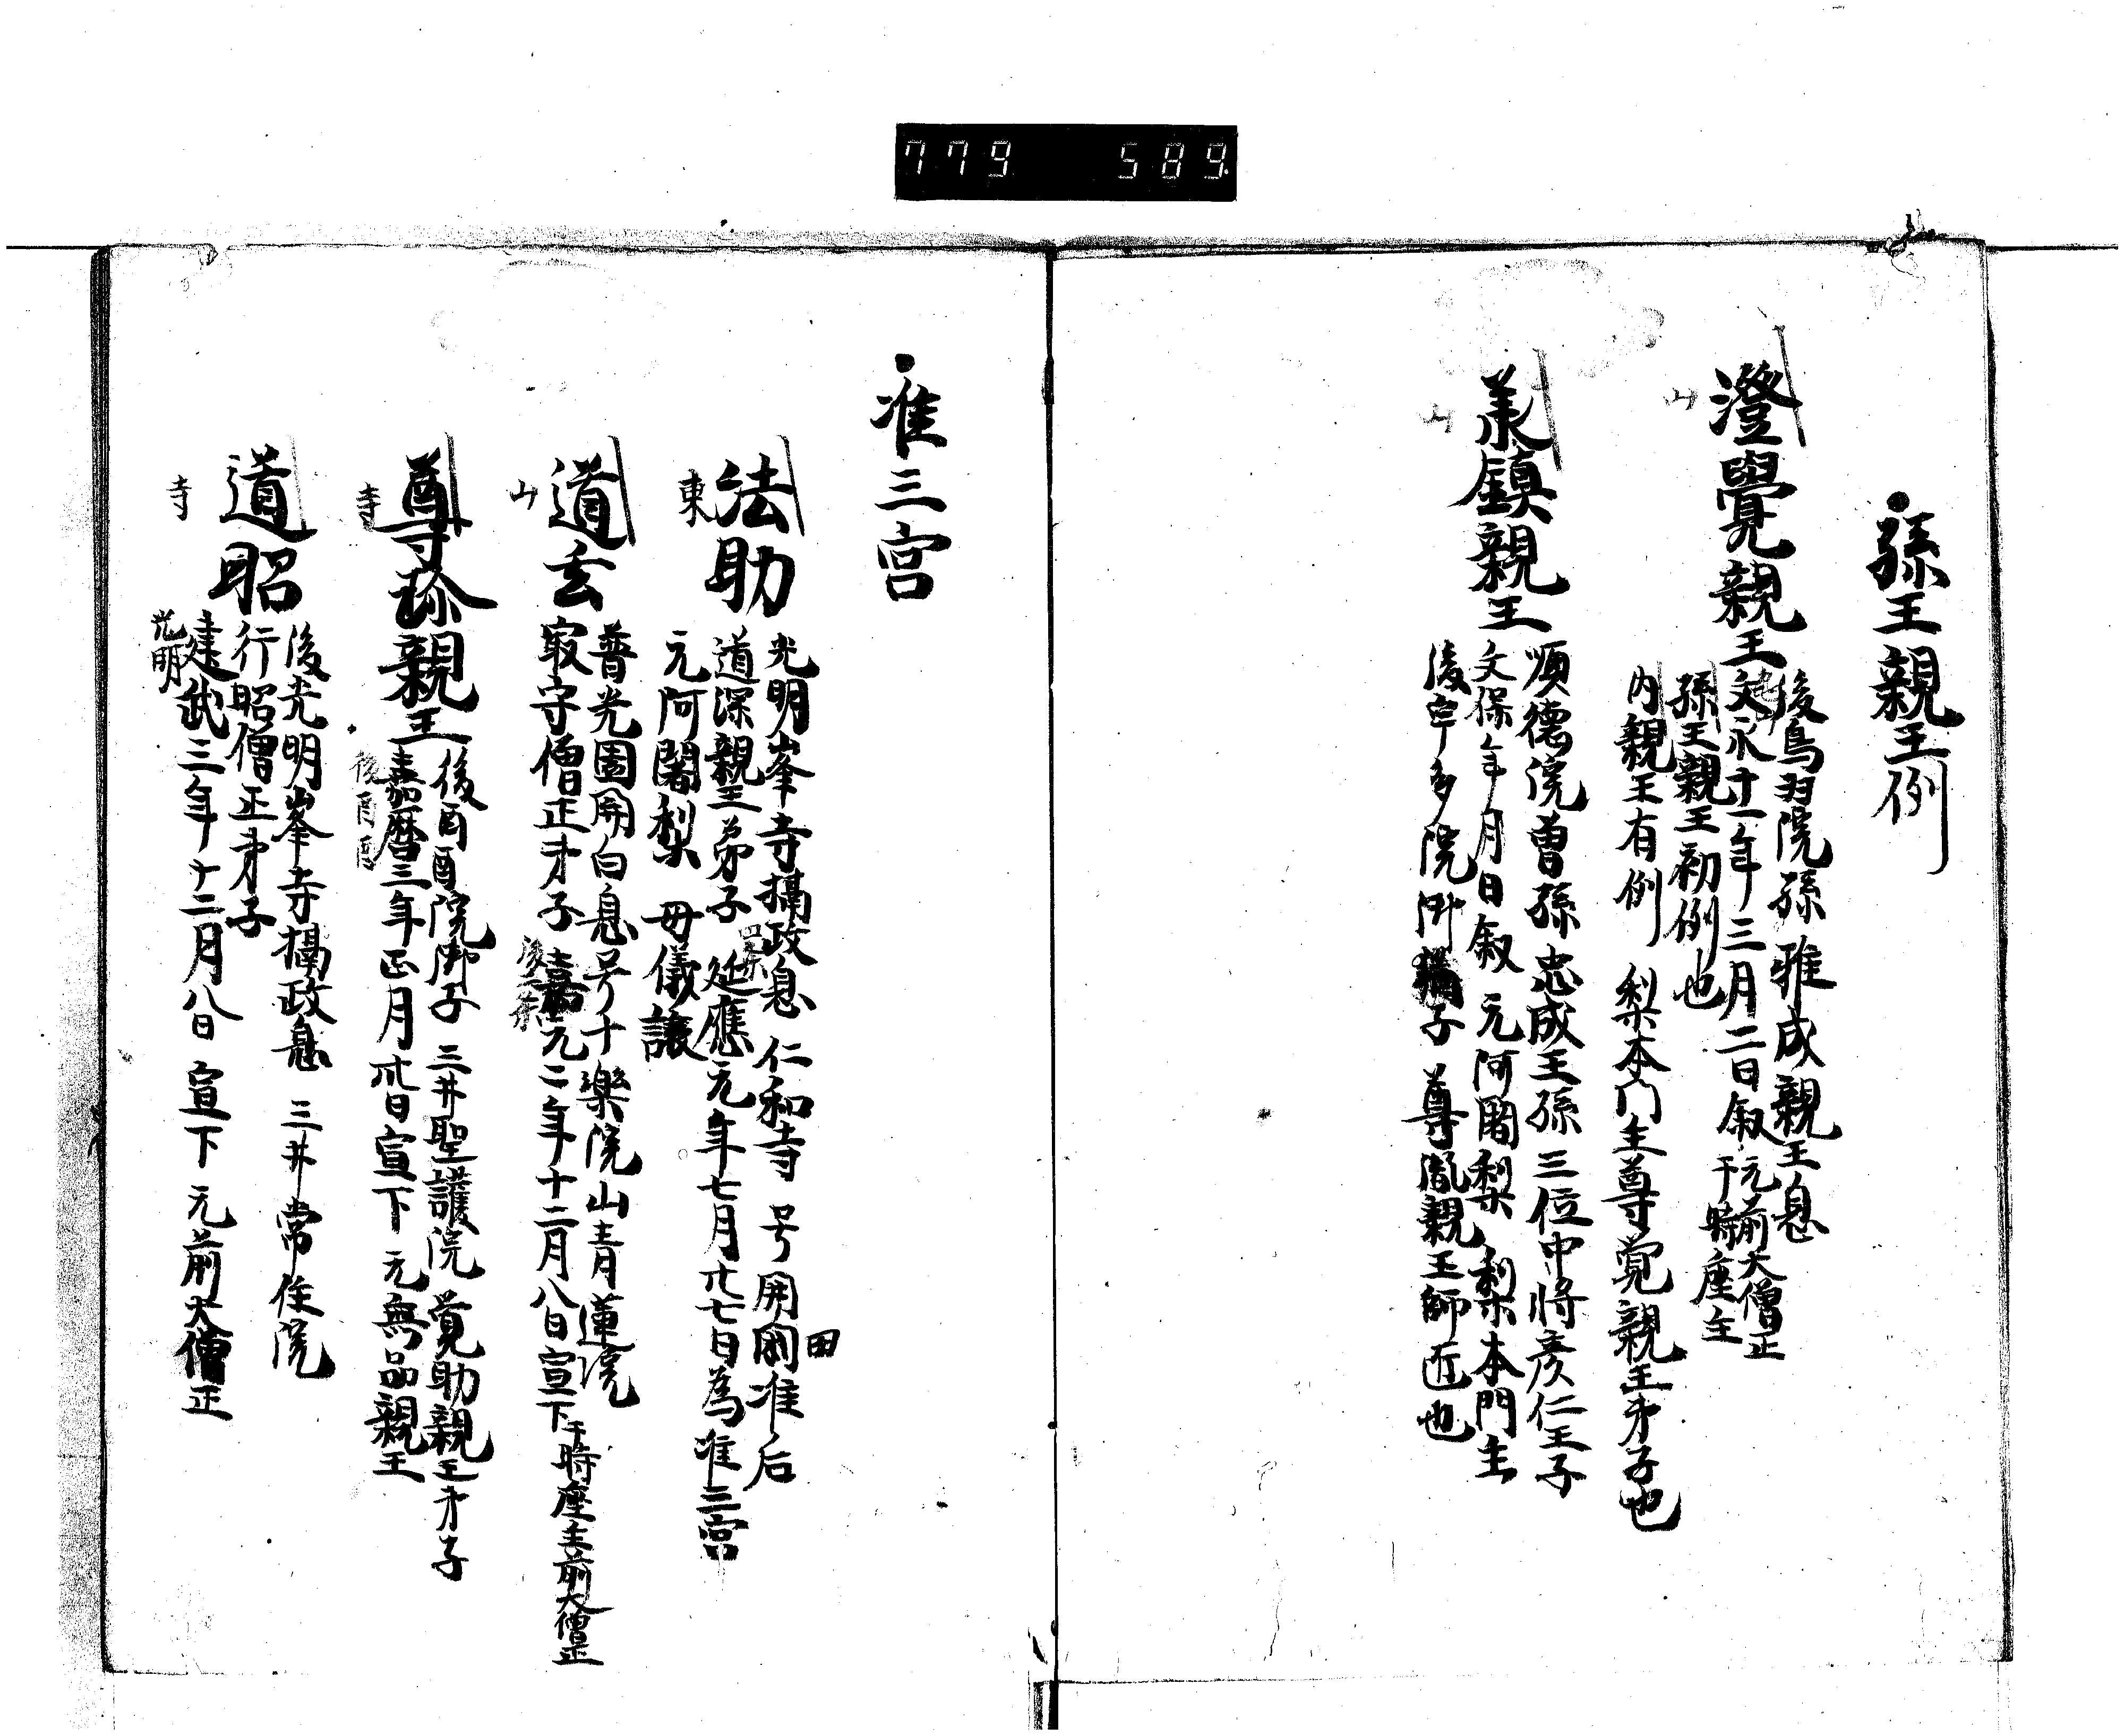 779 589
孫王親王例
澄覺親王
山
後鳥羽院孫雅成親王息
文永十一年三月二日叙 元前大僧正
于時座主
孫王親王初例也
内親王有例 梨本門主尊覚親王弟子也
承鎮親王
山
順德院曽孫忠成王孫三位中将彦仁王子
文保年月日叙 元阿闍梨 梨本門主
後宇多院御猶子 尊胤親王師匠也
准三宮
法助
東
光明峯寺摂政息 仁和寺 号開田准后
道深親王弟子 延應元年七月廿七日為准三宮
元阿闍梨 母儀譲
道玄
山
普光園関白息号十樂院山青蓮院
最守僧正弟子 嘉元二年十二月八日宣下于時座主前大僧正
尊珎親王
寺
後酉酉院御子 三井聖護院覚助親王弟子
嘉暦三年正月廿日宣下 元無品親王
後酉酉
道昭
寺
後光明峯寺摂政息 三井常住院
行昭僧正弟子
建武三年十二月八日 宣下 元前大僧正
光明